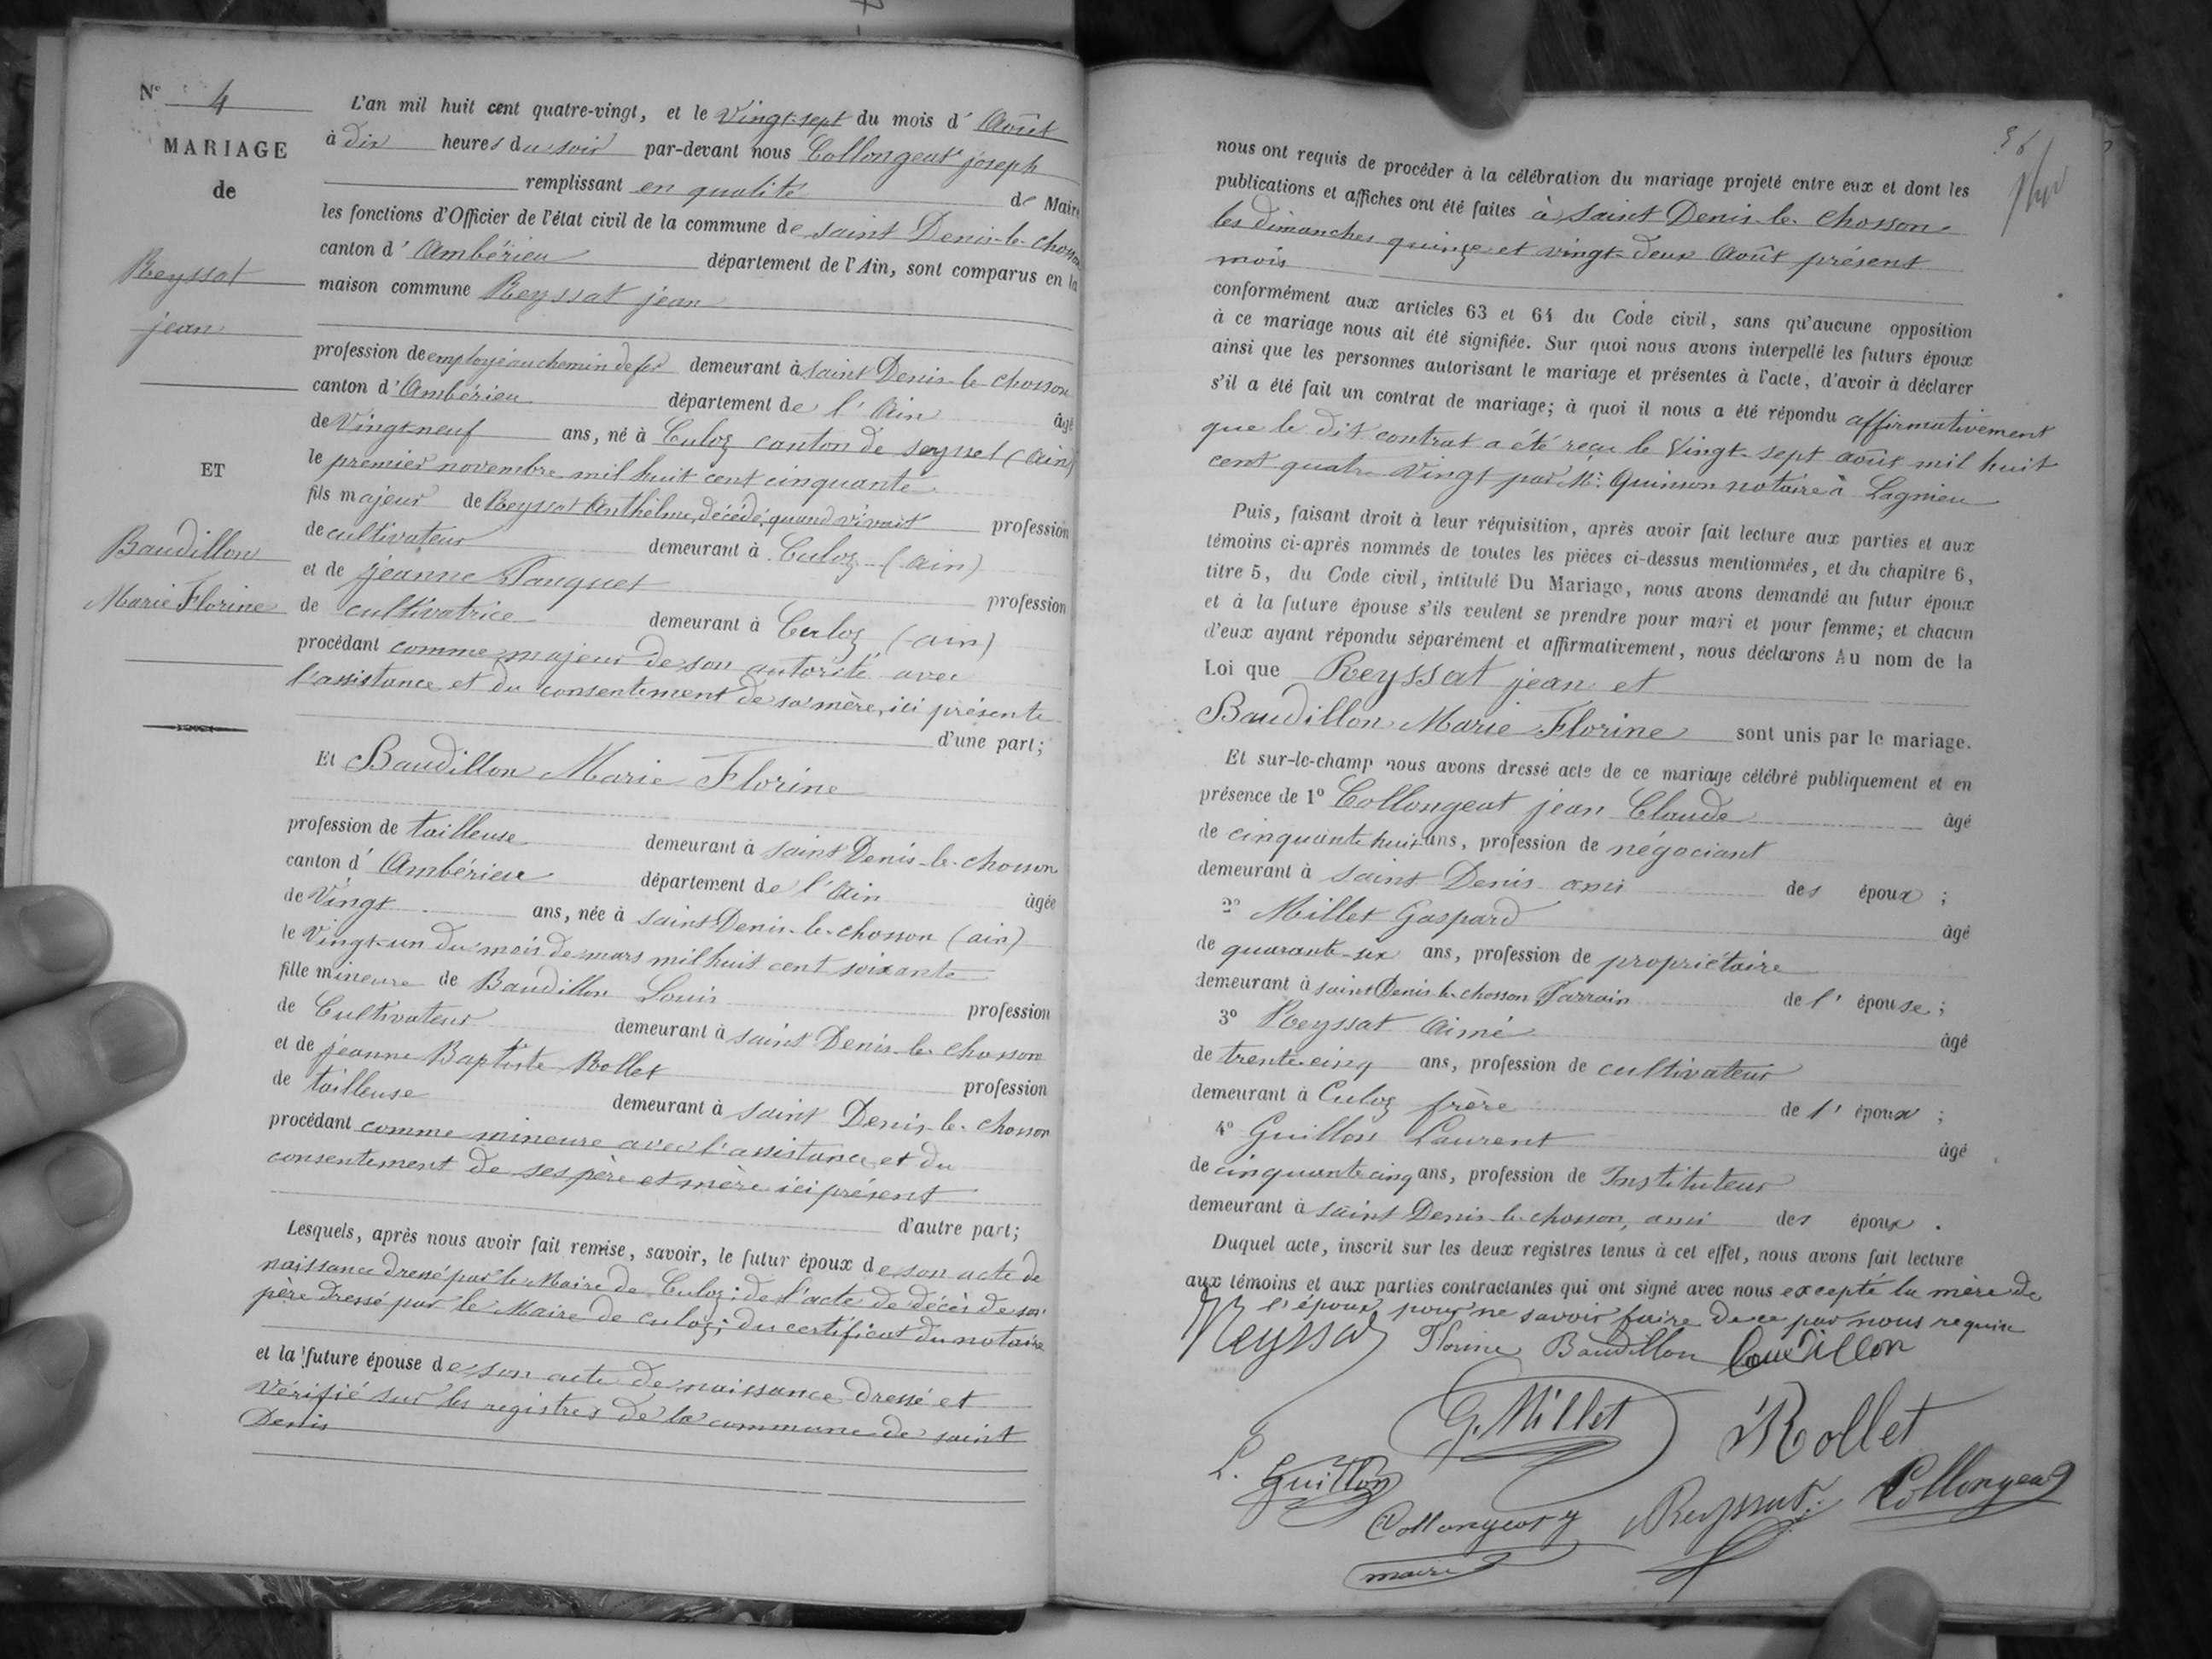 N° 4
MARIAGE
de
Reyssat
jean
ET
Baudillon
Marie Florine
L'an mil huit cent quatre-vingt, et le Vingt-sept du mois d' Août
à dix heures du soir par-devant nous Collongeat joseph
remplissant en qualité de Maire
les fonctions d'Officier de l'état civil de la commune de saint Denis-le-chosson
canton d' Ambérieu département de l'Ain, sont comparus en la
maison commune Reyssat jean
profession de employé au chemin de fer demeurant à saint Denis-le-chosson
canton d' Ambérieu département de l' Ain âgé
de Vingt-neuf ans, né à Culoz canton de seyssel (Ain)
le premier novembre mil huit cent cinquante
fils majeur de Reyssat Anthelme, décédé, quand vivait profession
de cultivateur demeurant à Culoz (ain)
et de jeanne Pauquet profession
de cultivatrice demeurant à Culoz (ain)
procédant comme majeur de son autorité avec
l'assistance et du consentement de sa mère, ici présente
d'une part;
Et Baudillon Marie Florine
profession de tailleuse demeurant à saint Denis-le-chosson
canton d' Ambérieu département de l' Ain âgée
de Vingt ans, née à saint Denis-le-chosson (ain)
le Vingt-un du mois de mars mil huit cent soixante
fille mineure de Baudillon Louis profession
de Cultivateur demeurant à saint Denis-le-chosson
et de jeanne Baptiste Rollet profession
de tailleuse demeurant à saint Denis-le-chosson
procédant comme mineure avec l'assistance et du
consentement de ses père et mère ici présent
d'autre part;
Lesquels, après nous avoir fait remise, savoir, le futur époux de son acte de
naissance dressé par le Maire de Culoz; de l'acte de décès de son
père dressé par le Maire de culoz; du certificat du notaire
et la future épouse de son acte de naissance dressé et
vérifié sur les registres de la commune de saint
Denis
36
nous ont requis de procéder à la célébration du mariage projeté entre eux et dont les
publications et affiches ont été faites à saint Denis-le-chosson
les dimanches quinze et vingt-deux Août présent
mois
conformément aux articles 63 et 64 du Code civil, sans qu'aucune opposition
à ce mariage nous ait été signifiée. Sur quoi nous avons interpellé les futurs époux
ainsi que les personnes autorisant le mariage et présentes à l'acte, d'avoir à déclarer
s'il a été fait un contrat de mariage; à quoi il nous a été répondu affirmativement
que le dit contrat a été reçu le Vingt-sept août mil huit
cent quatre Vingt par Mr. Quinson notaire à Lagnieu
Puis, faisant droit à leur réquisition, après avoir fait lecture aux parties et aux
témoins ci-après nommés de toutes les pièces ci-dessus mentionnées, et du chapitre 6,
titre 5, du Code civil, intitulé Du Mariage, nous avons demandé au futur époux
et à la future épouse s'ils veulent se prendre pour mari et pour femme; et chacun
d'eux ayant répondu séparément et affirmativement, nous déclarons Au nom de la
Loi que Reyssat jean et
Baudillon Marie Florine sont unis par le mariage.
Et sur-le-champ nous avons dressé acte de ce mariage célébré publiquement et en
présence de 1° Collongeat jean Claude âgé
de cinquante huit ans, profession de négociant
demeurant à saint Denis ami des époux ;
2° Millet Gaspard âgé
de quarante-six ans, profession de propriétaire
demeurant à saint Denis le chosson Parrain de l' épouse ;
3° Reyssat Aimé âgé
de trente-cinq ans, profession de cultivateur
demeurant à Culoz frère de l' époux ;
4° Guillon Laurent âgé
de cinquante cinq ans, profession de Instituteur
demeurant à saint Denis-le-chosson, ami des époux .
Duquel acte, inscrit sur les deux registres tenus à cet effet, nous avons fait lecture
aux témoins et aux parties contractantes qui ont signé avec nous excepté la mère de
l'époux pour ne savoir faire de ce par nous requise
Reyssat Florine Baudillon Baudillon
G. Millet Rollet
L. Guillon
Collongeat Reyssat Collongeat
maire